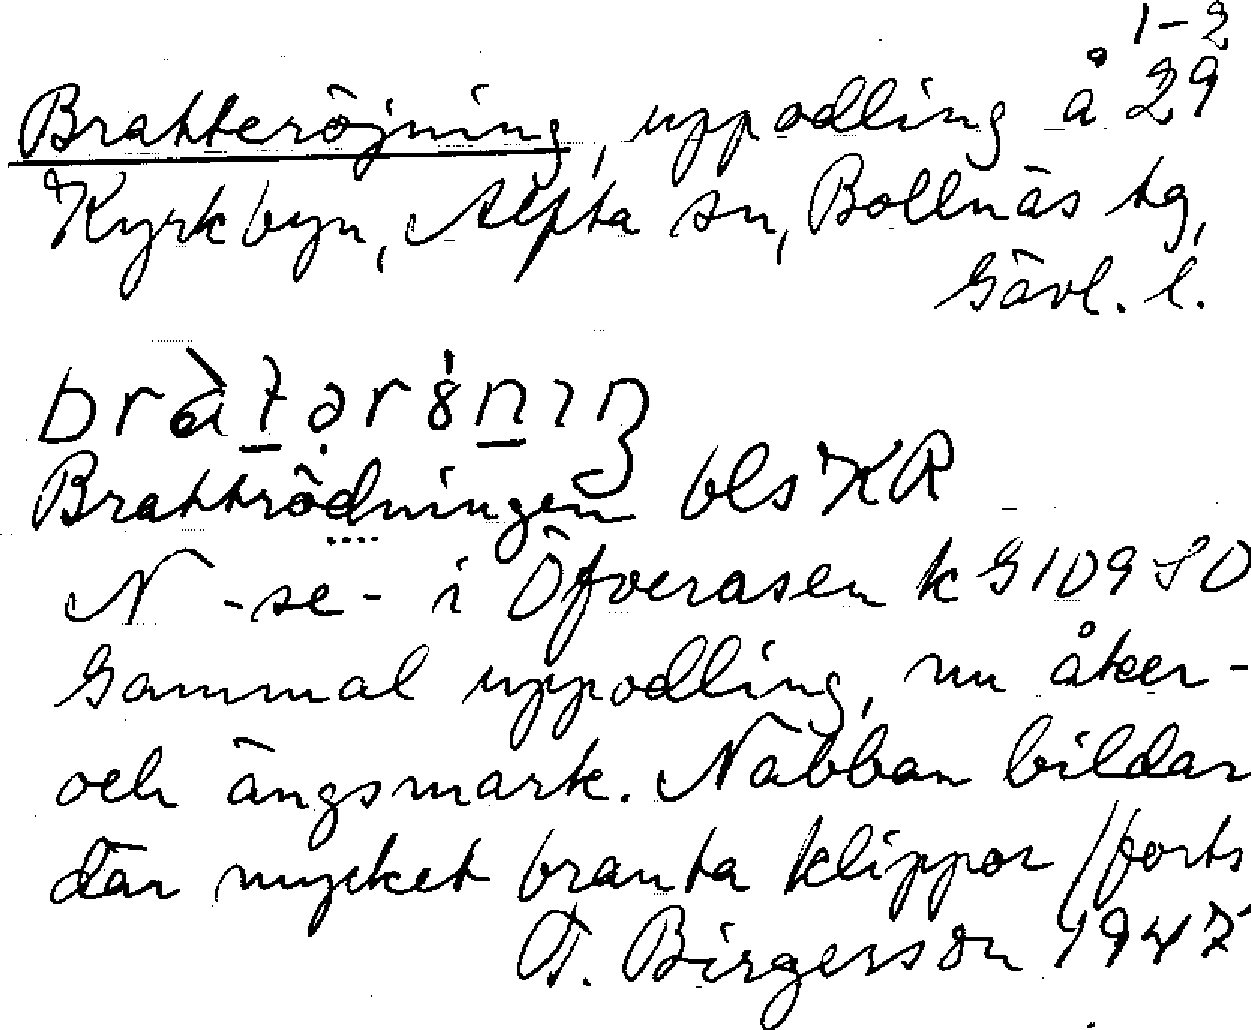 1-2
Bratteröjning, uppodling å 29
Kyrkbyn, Alfta sn, Bollnäs tg,
Gävl. l.
Brattrödningen bls KR
N -se- i Öfverasen k G 109 SO
Gammal uppodling, nu åker-
och ängsmark. Näbban bildar
där mycket branta klippor /forts
T. Birgerson 1947